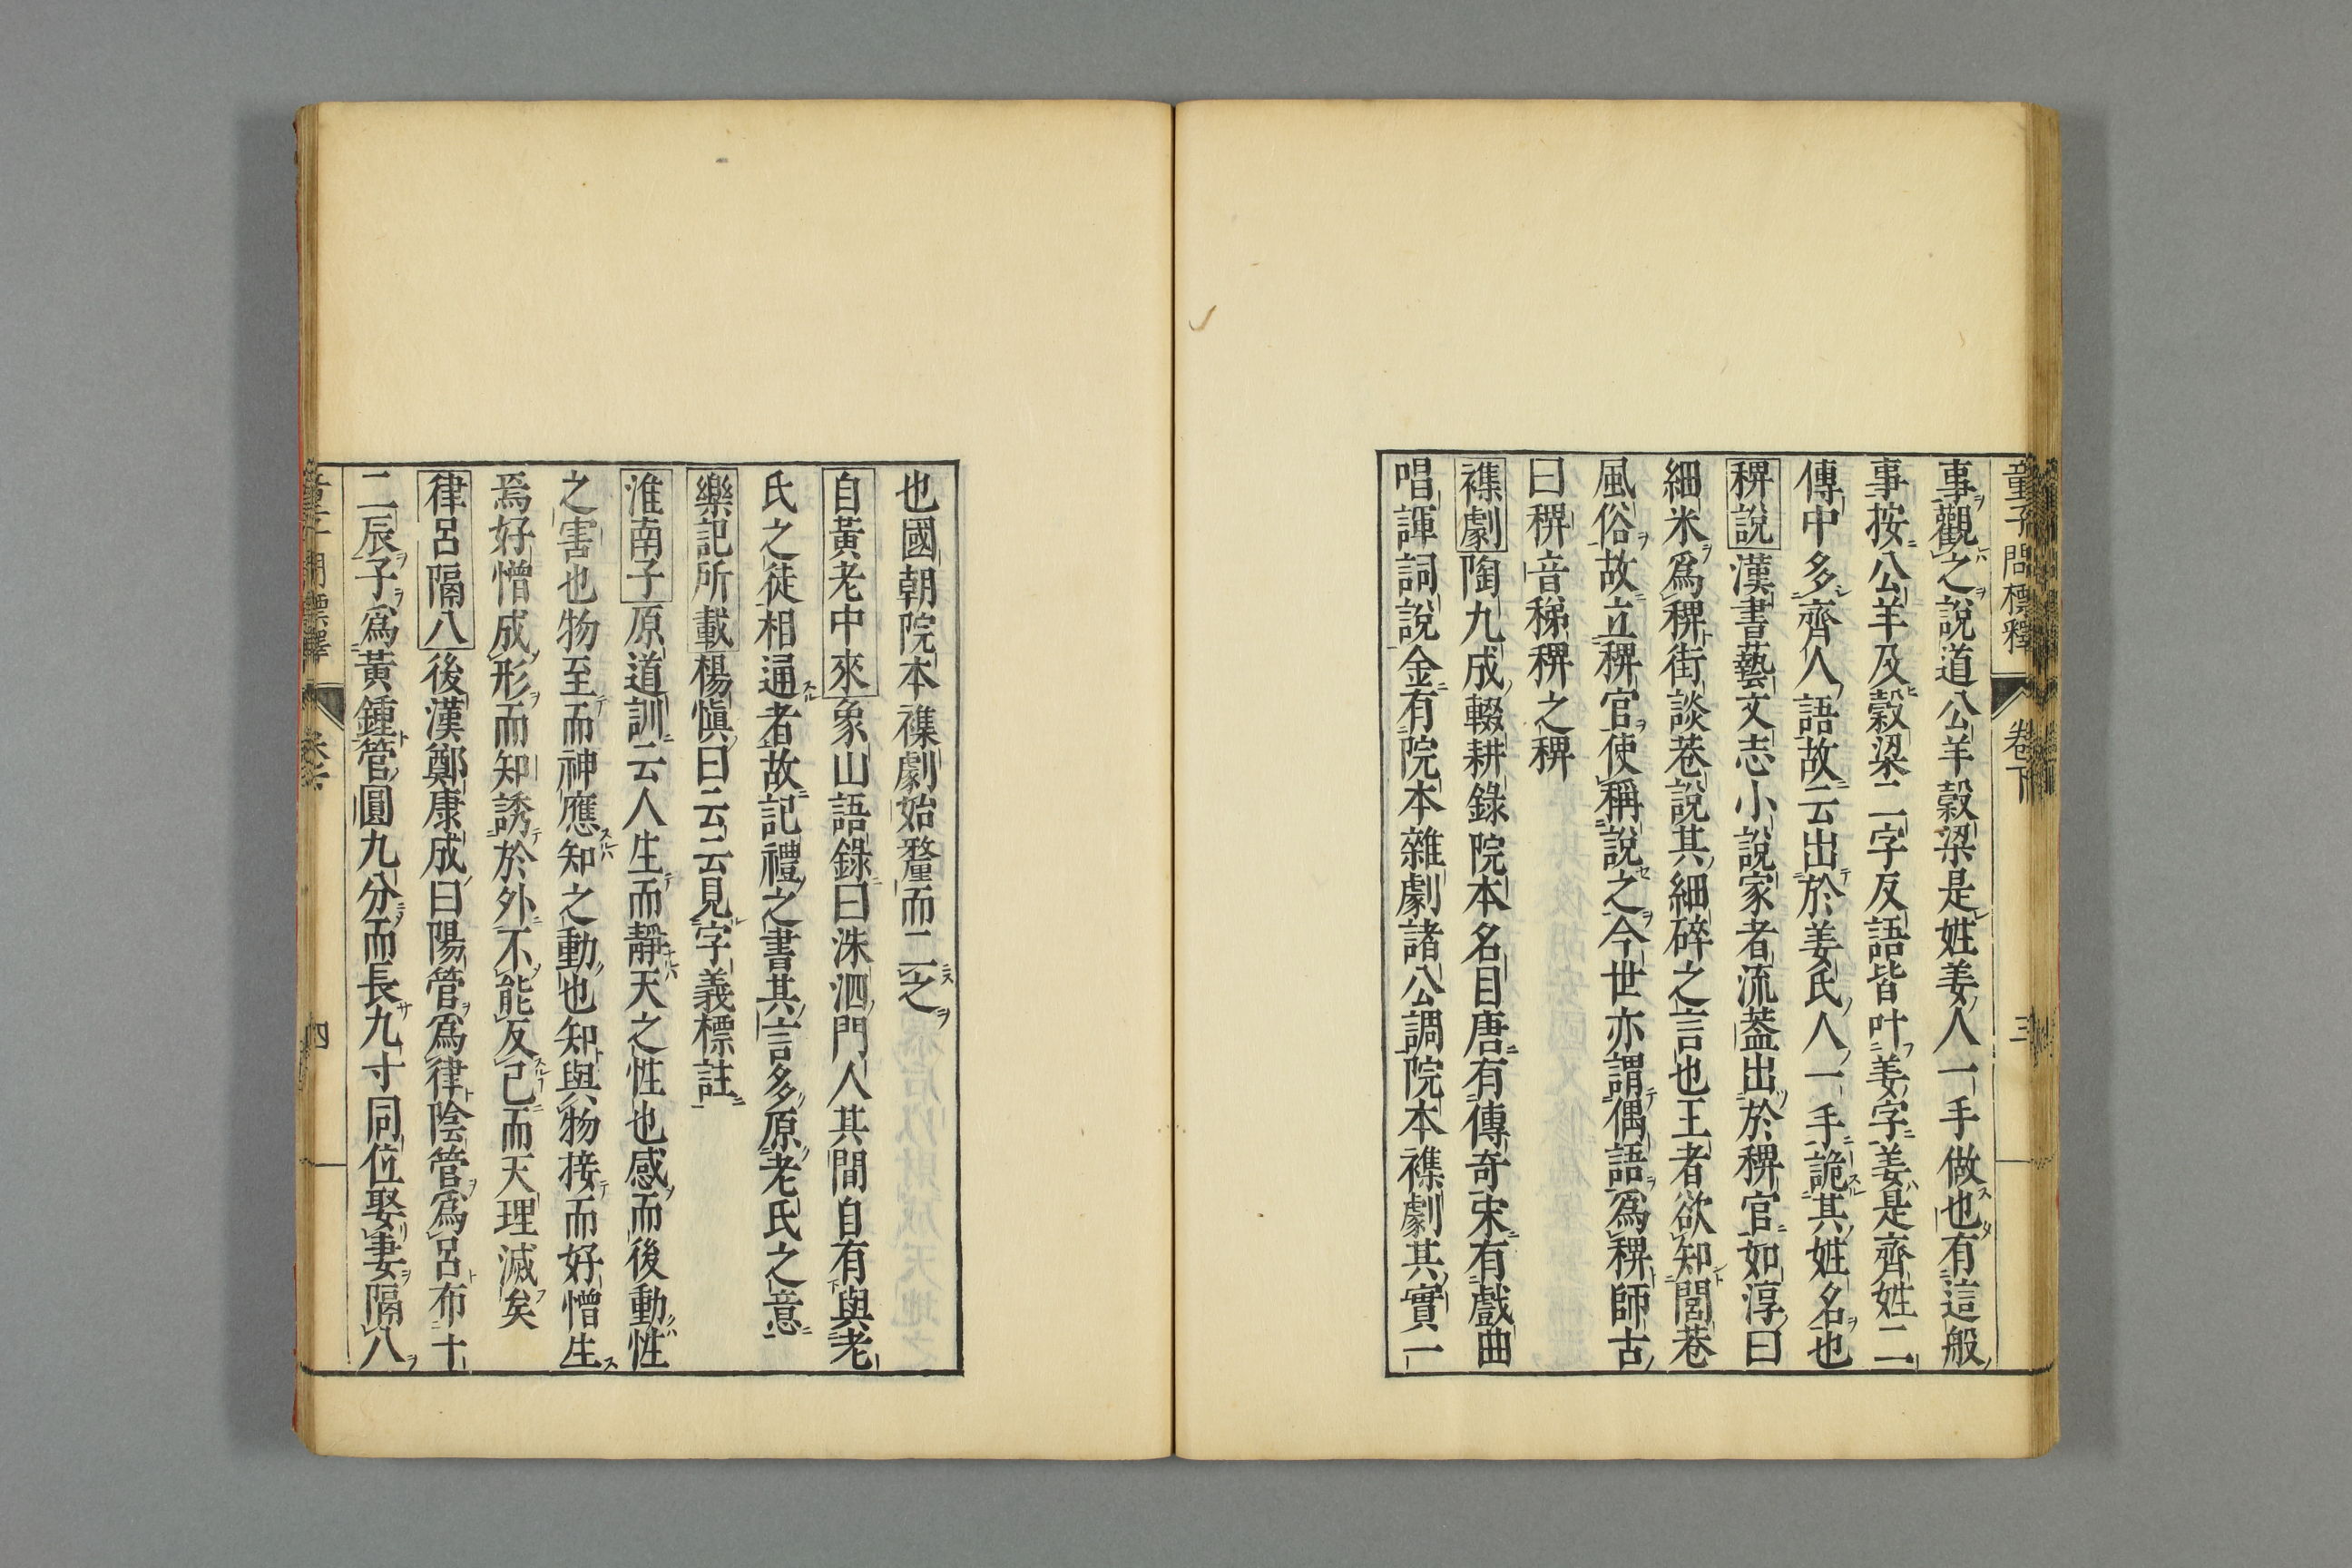 童子問標釋 卷下 三
事觀之說道公羊穀梁是姓姜人一手做也有這般
事按公羊及穀梁二字反語皆叶姜字姜是齊姓二
傳中多齊人語故云出於姜氏人一手詭其姓名也
稗說漢書藝文志小說家者流葢出於稗官如淳曰
細米爲稗街談巷說其細碎之言也王者欲知閭巷
風俗故立稗官使稱說之今世亦謂偶語爲稗師古
曰稗音稊稗之稗
襍劇陶九成輟耕錄院本名目唐有傳奇宋有戲曲
唱諢詞說金有院本雜劇諸公調院本襍劇其實一
也國朝院本襍劇始釐而二之
自黃老中來象山語錄曰洙泗門人其間自有與老
氏之徒相通者故記禮之書其言多原老氏之意
樂記所載楊愼曰云云見字義標註
淮南子原道訓云人生而靜天之性也感而後動性
之害也物至而神應知之動也知與物接而好憎生
焉好憎成形而知誘於外不能反己而天理滅矣
律呂隔八後漢鄭康成曰陽管爲律陰管爲呂布十
二辰子爲黃鍾管圓九分而長九寸同位娶妻隔八